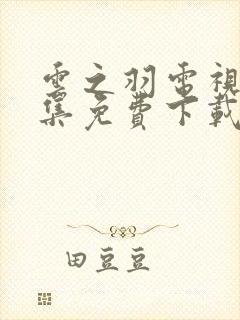 雲之羽電視
集免費下載
田豆豆